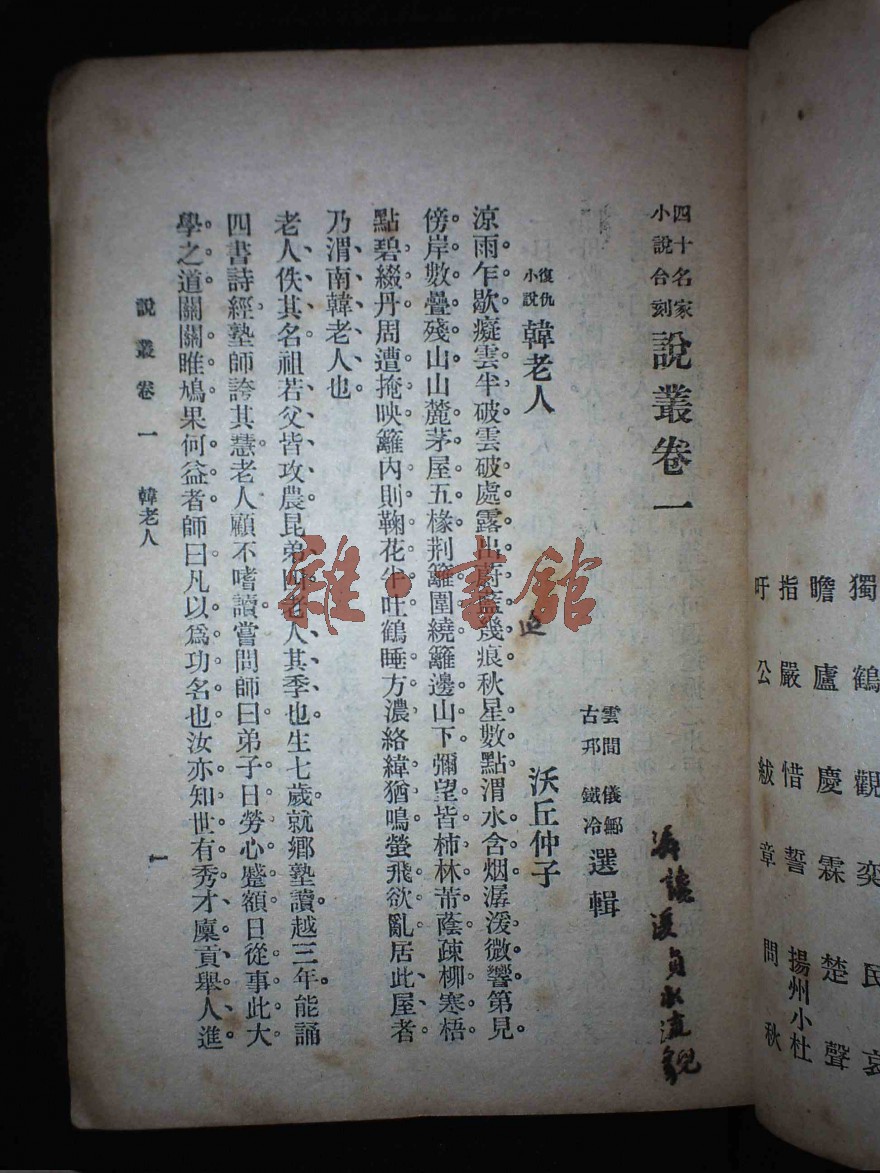 獨鶴 觀奕 民哀
瞻廬 慶霖 楚聲
指嚴 惜誓 揚州小杜
吁公 紱章 問秋
四十名家
小說台刻
說叢卷一
雲間 儀鄦
古邗 鐵冷
選輯
復仇
小說
韓老人
沃丘仲子
涼雨乍歇。癡雲半破。雲破處。露出蔚藍幾痕。秋星數點。渭水含烟。潺湲微響。第見
傍岸數疊殘山。山麓茅屋五椽。荆籬圍繞。籬邊山下。彌望皆柿林。芾蔭疎柳寒梧。
點碧綴丹。周遭掩映。籬內則鞠花半吐。鶴睡方濃。絡緯猶鳴。螢飛欲亂。居此屋者、
乃渭南韓老人也
老人佚其名。祖若父皆攻農。昆弟四。老人其季也。生七歲。就鄉塾讀。越三年。能誦
四書詩經。塾師誇其慧。老人顧不嗜讀。嘗問師曰。弟子日勞心蹙額。日從事此大
學之道。關關雎鳩。果何益者。師曰。凡以爲功名也。汝亦知世有秀才廩貢舉人進
說叢卷一 韓老人
一
雜·書館